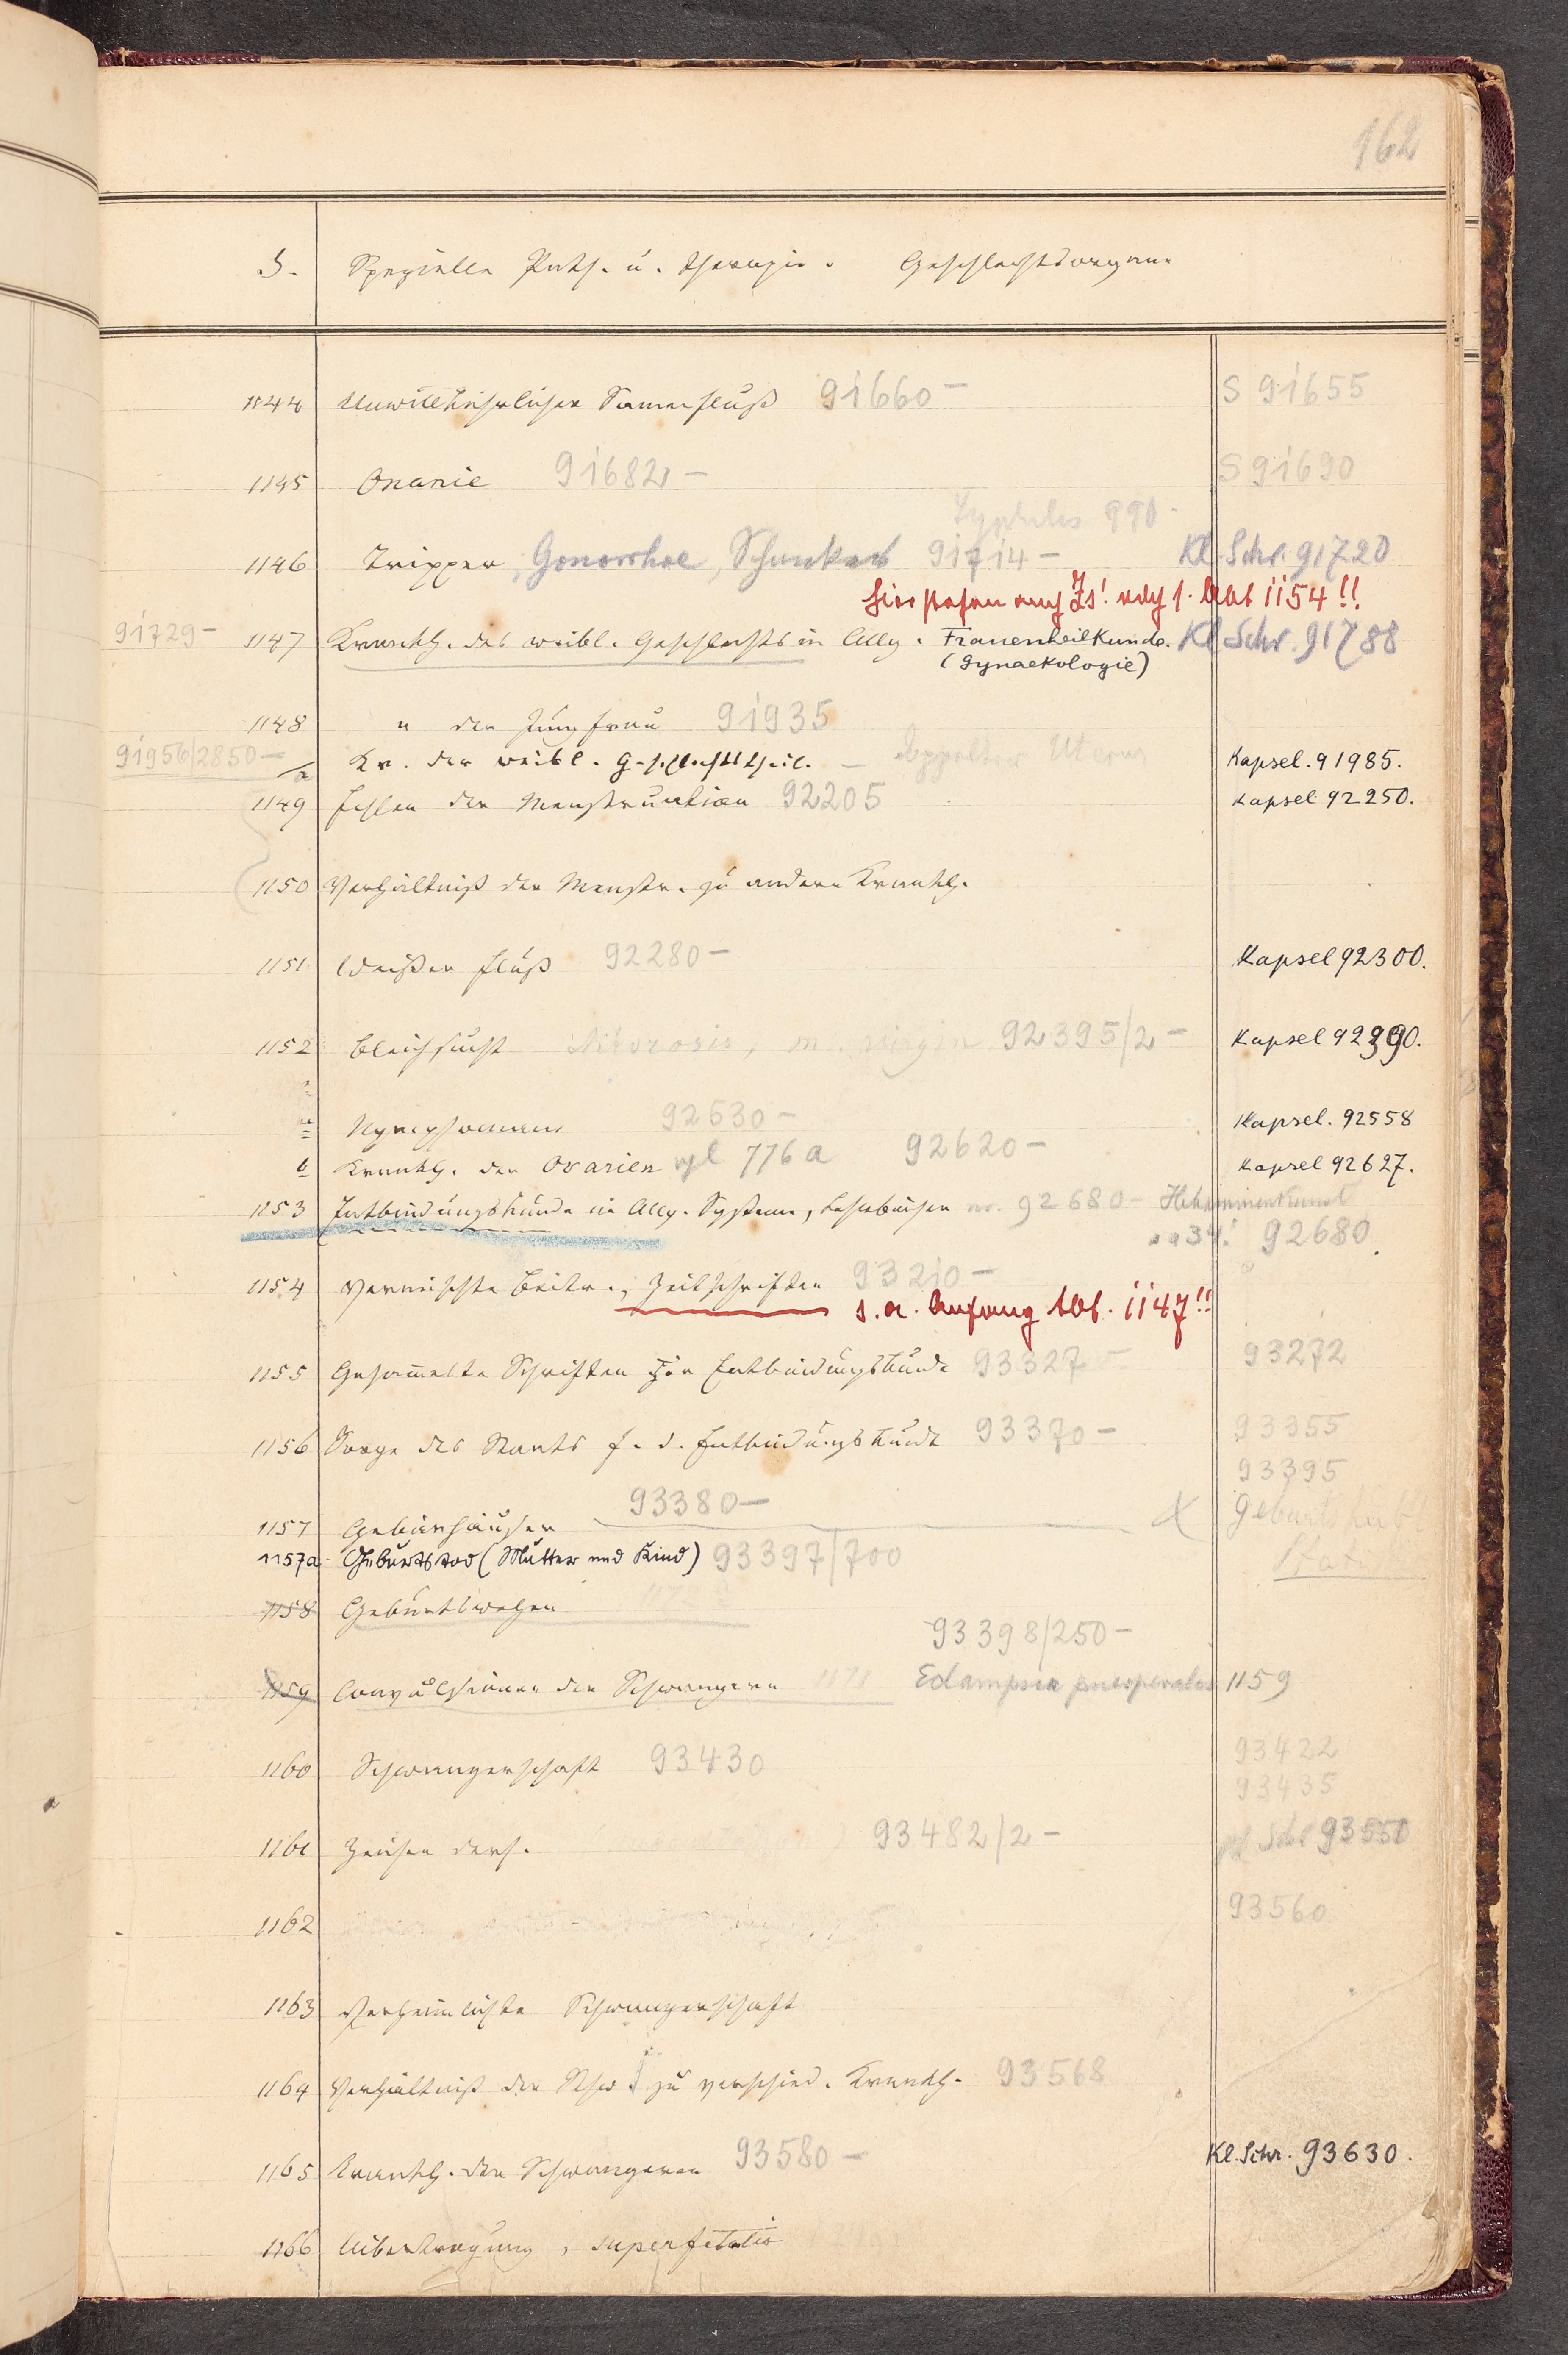 162
J. Spezielle Path. u. Therapie. Geschlechtsorgane
1144 Unwillkürlicher Samenfluß 91660 — S 91655
1145 Onanie 91682 — S 91690
Syphilis 990
1146 Tripper, Gonorrhoe, Schanker 91714 — Kl. Schr. 91720
hier stehen auch Zs! vgl. 1154!!
91729 — 1147 Krankh. des weibl. Geschlechts in Allg. Frauenheilkunde. Kl. Schr. 91788
(Gynaekologie)
1148 " der Jungfrau 91935
91956/2850 — a Kr. der weibl. Geschlechtstheile. — doppelter Uterus Kapsel. 91985.
1149 Fehlen der Menstruation 92205 Kapsel 92250.
1150 Verhältniß der Menstr. zu andern Krankh.
1151 Weißer Fluß 92280 — Kapsel 92300.
1152 Bleichsucht Chlorosis, m. virgin 92395/2 — Kapsel 92390.
a Nymphomanie 92530 — Kapsel. 92558
b Krankh. der Ovarien vgl 776a 92620 — Kapsel 92627.
1153 Entbindungskunde in Allg. Systeme, Lehrbücher no. 92680 — Hebammenkunst
92680
1154 Vermischte Beitr., Zeitschriften 93210 —
s. a. Anfang 1147!!
1155 Gesammelte Schriften zur Entbindungskunde 93327 — 93272
1156 Sorge des Staats f. d. Entbindungskunde 93370 — 93355
93395
1157 Gebärhäuser 93380 — Geburts
1157a Geburtstod (Mutter und Kind) 93397/700
1158 Geburtswehen
93398/250 —
1159 Convulsionen der Schwangern 1171 Eclampsia puerperalis 1159
1160 Schwangerschaft 93430 93422
93435
1161 Zeichen ders. 93482/2 — Kl Schr 93550
1162 93560
1163 Verheimlichte Schwangerschaft
1164 Verhältniß der Schw. zu verschied. Krankh. 93568
1165 Krankh. der Schwangeren 93580 — Kl. Schr. 93630.
1166 Ueberschwängerung, superfetatio